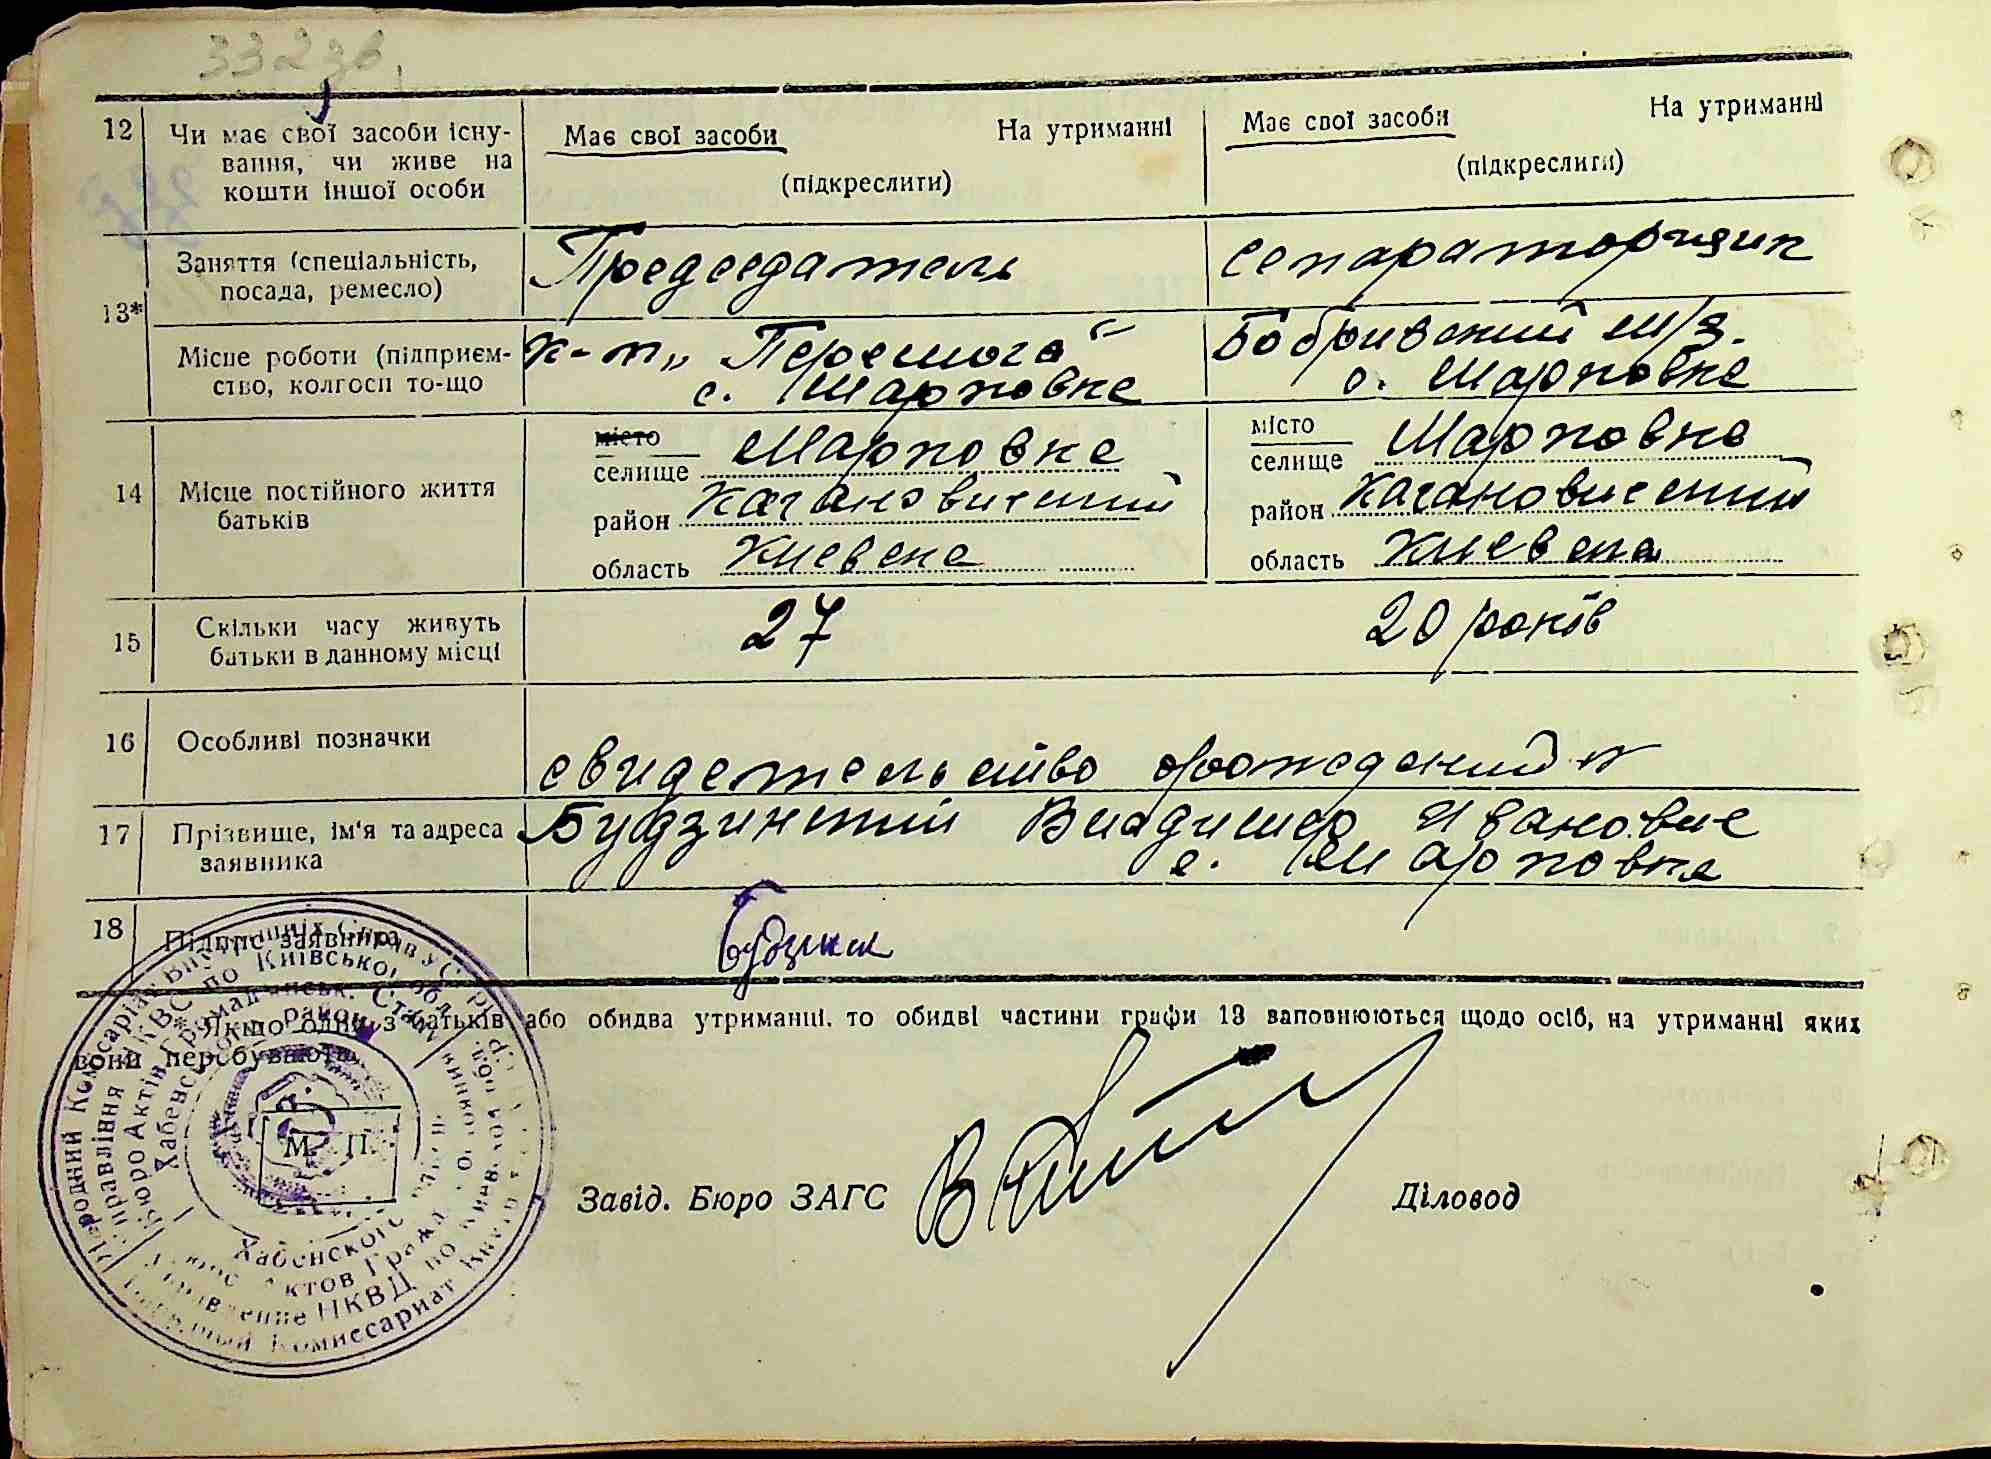 33236
12 Чи має свої засоби існу-
вання, чи живе на
кошти іншої особи
Має свої засоби На утриманні
(підкреслити)
Має свої засоби На утриманні
(підкреслити)
13* Заняття (спеціальність,
посада, ремесло)
Председатель
сепараторщик
Місце роботи (підприєм-
ство, колгосп то-що
к-т „Перемога“
с. Марковке
Бобривский м/з.
с. Марковке
14 Місце постійного життя
батьків
місто
селище Марковке
район Кагановический
область Киевска
місто
селище Марковка
район Кагановический
область Киевска
15 Скільки часу живуть
батьки в данному місці
27
20 років
16 Особливі позначки
свидетельство
17 Прізвище, ім'я та адреса
заявника
Будзинский Владимер Иванович
с. Марковка
18 Підпис заявника
* Якщо один з батьків або обидва утриманці, то обидві частини графи 13 заповнюються щодо осіб, на утриманні яких
вони перебувають.
М. П.
Завід. Бюро ЗАГС
Діловод
Народний Комісаріат Внутрішніх Справ УСРР
Управління НКВС по Київської обл.
Бюро Актів Громадянськ. Стану
Хабенского
Управление НКВД по Киевской обл.
Народный Комиссариат